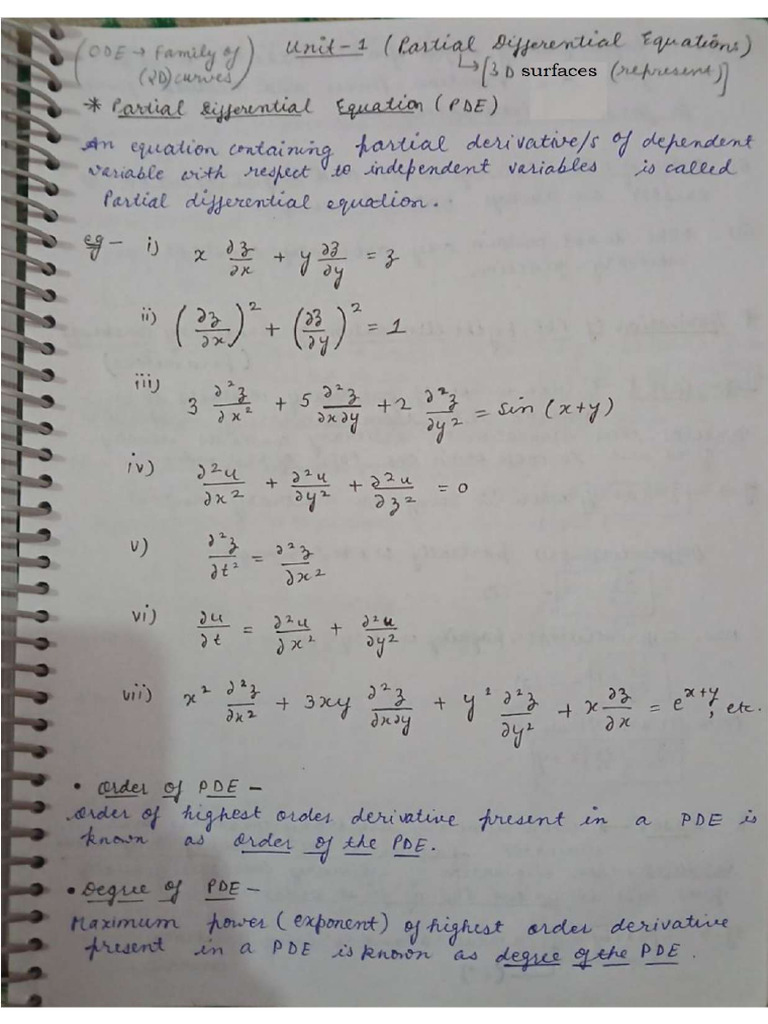 (ODE → Family of (2D) curves) Unit-1 (Partial Differential Equations)
↳ [3D surfaces (represent)]
* Partial Differential Equation (PDE)
An equation containing partial derivative/s of dependent
variable with respect to independent variables is called
Partial differential equation.
eg – i) x ∂z/∂x + y ∂z/∂y = z
ii) (∂z/∂x)² + (∂z/∂y)² = 1
iii) 3 ∂²z/∂x² + 5 ∂²z/∂x∂y + 2 ∂²z/∂y² = sin (x+y)
iv) ∂²u/∂x² + ∂²u/∂y² + ∂²u/∂z² = 0
v) ∂²z/∂t² = ∂²z/∂x²
vi) ∂u/∂t = ∂²u/∂x² + ∂²u/∂y²
vii) x² ∂²z/∂x² + 3xy ∂²z/∂x∂y + y² ∂²z/∂y² + x ∂z/∂x = e^(x+y), etc.
• Order of PDE –
Order of highest order derivative present in a PDE is
known as order of the PDE.
• Degree of PDE –
Maximum power (exponent) of highest order derivative
present in a PDE is known as degree of the PDE.